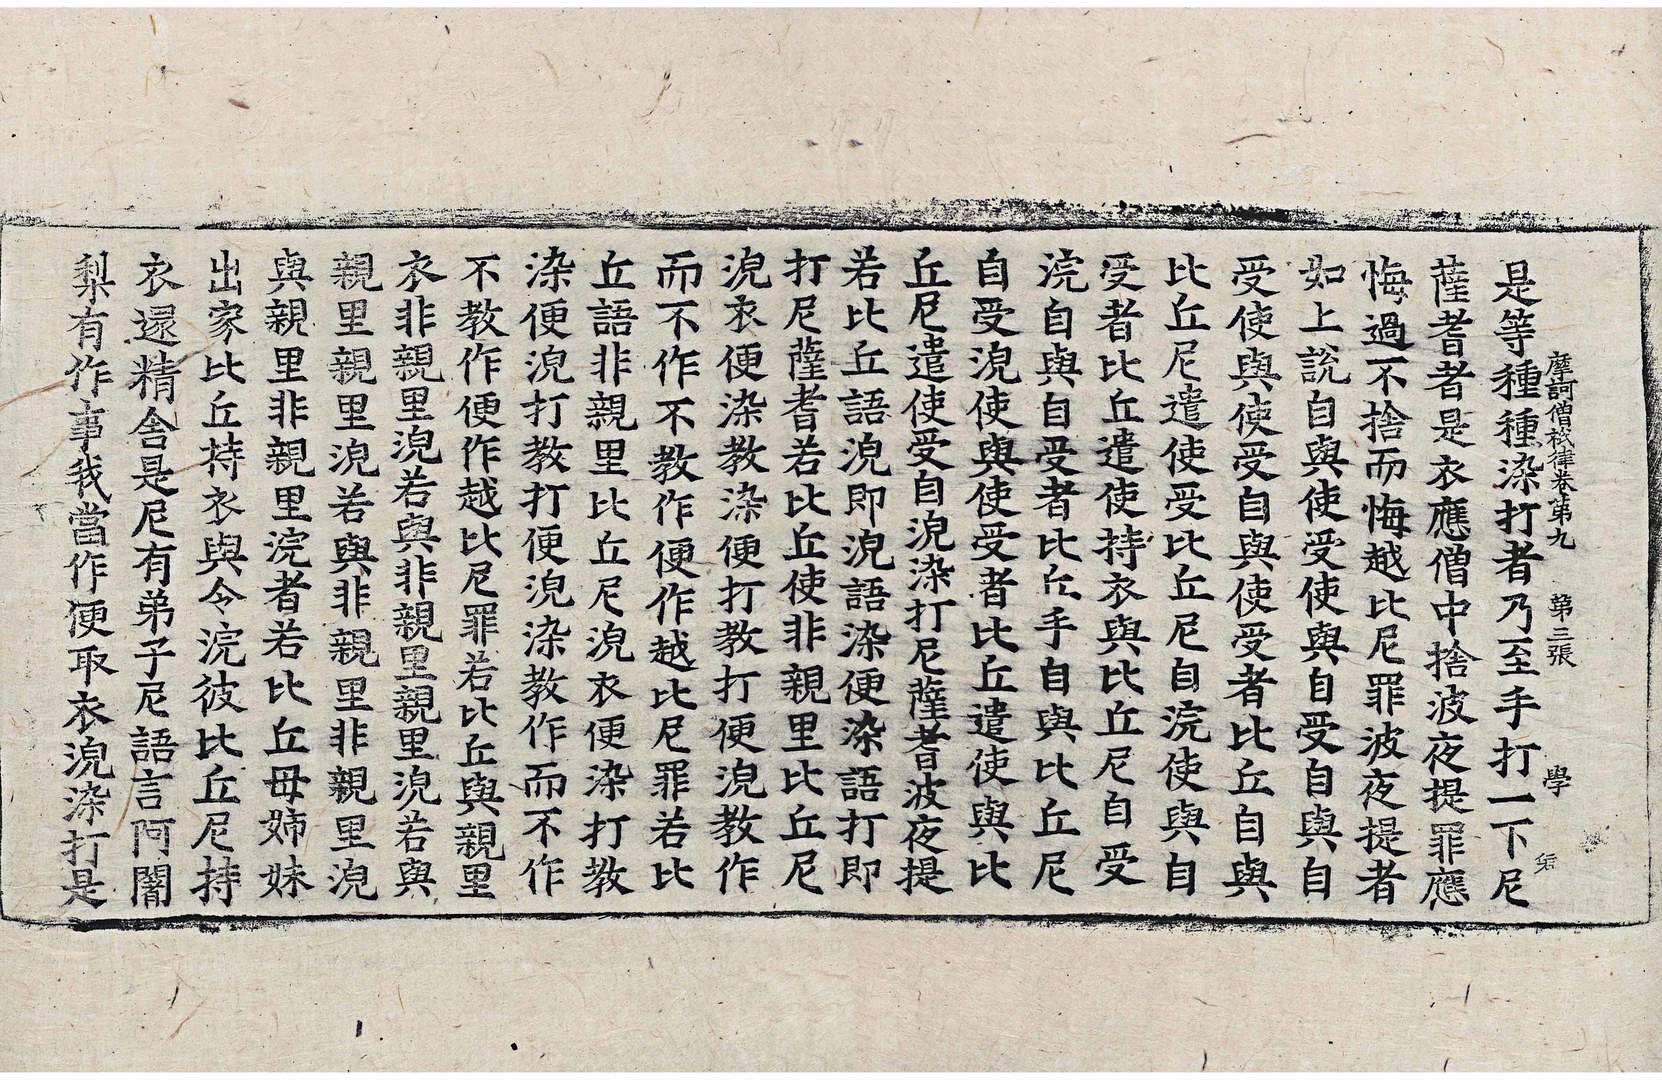 摩訶僧祇律卷第九 第三張 學
是等種種染打者乃至手打一下尼
薩耆者是衣應僧中捨波夜提罪應
悔過不捨而悔越比尼罪波夜提者
如上說自與使受使與自受自與自
受使與使受自與使受者比丘自與
比丘尼遣使受比丘尼自浣使與自
受者比丘遣使持衣與比丘尼自受
浣自與自受者比丘手自與比丘尼
自受涀使與使受者比丘遣使與比
丘尼遣使受自涀染打尼薩耆波夜提
若比丘語涀即涀語染便染語打即
打尼薩耆若比丘使非親里比丘尼
涀衣便染教染便打教打便涀教作
而不作不教作便作越比尼罪若比
丘語非親里比丘尼涀衣便染打教
染便涀打教打便涀染教作而不作
不教作便作越比尼罪若比丘與親里
衣非親里涀若與非親里親里涀若與
親里親里涀若與非親里非親里涀
與親里非親里浣者若比丘母姊妹
出家比丘持衣與令浣彼比丘尼持
衣還精舍是尼有弟子尼語言阿闍
梨有作事我當作便取衣涀染打是